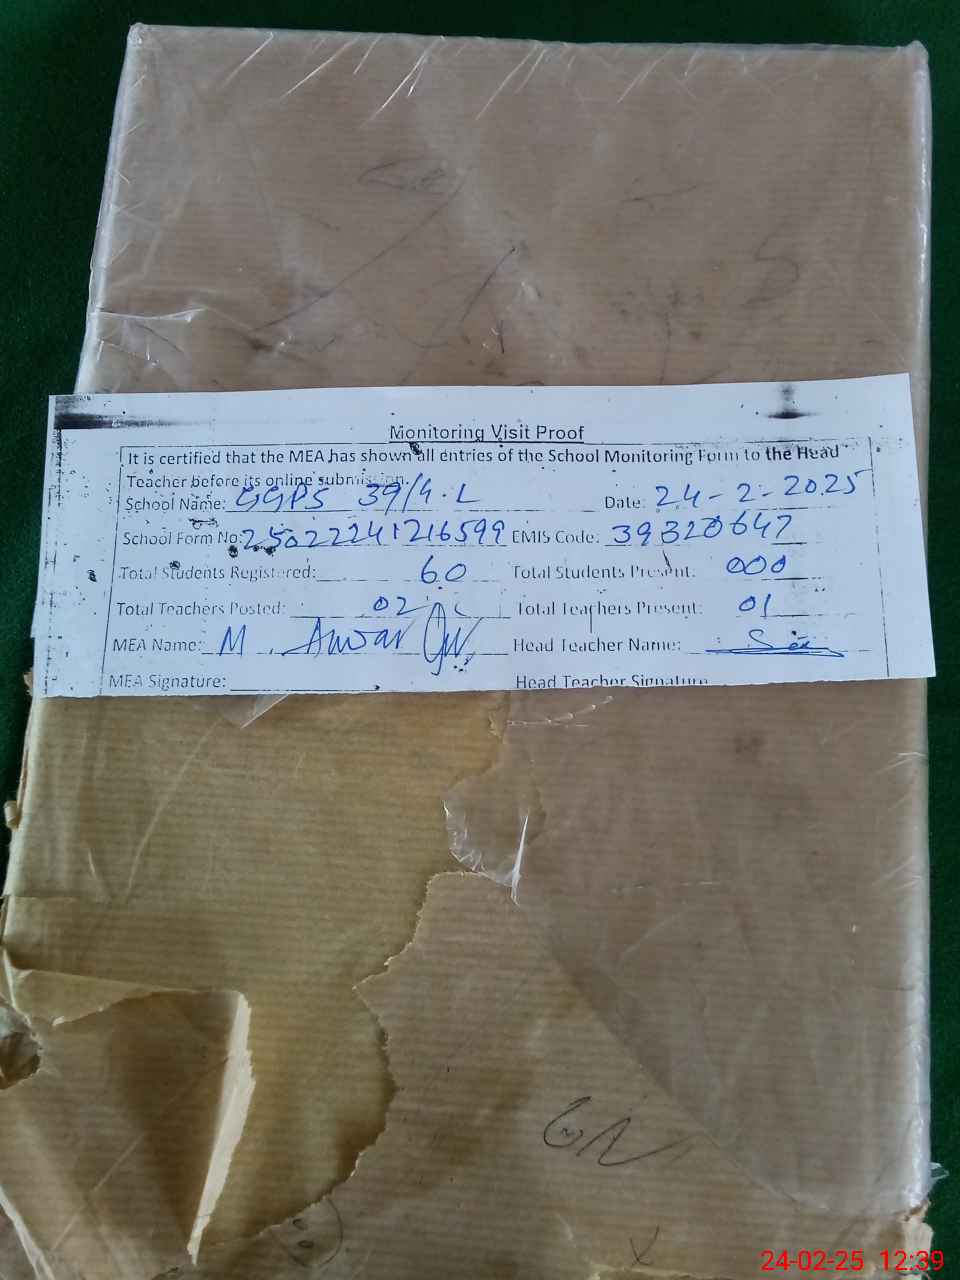 Monitoring Visit Proof
It is certified that the MEA has shown all entries of the School Monitoring Form to the Head
Teacher before its online submission.
School Name: GGPS 39/4.L Date: 24-2-2025
School Form No: 25022241216599 EMIS Code: 39320647
Total Students Registered: 60 Total Students Present: 000
Total Teachers Posted: 02 Total Teachers Present: 01
MEA Name: M. Anwar Head Teacher Name:
MEA Signature: Head Teacher Signature
24-02-25 12:39